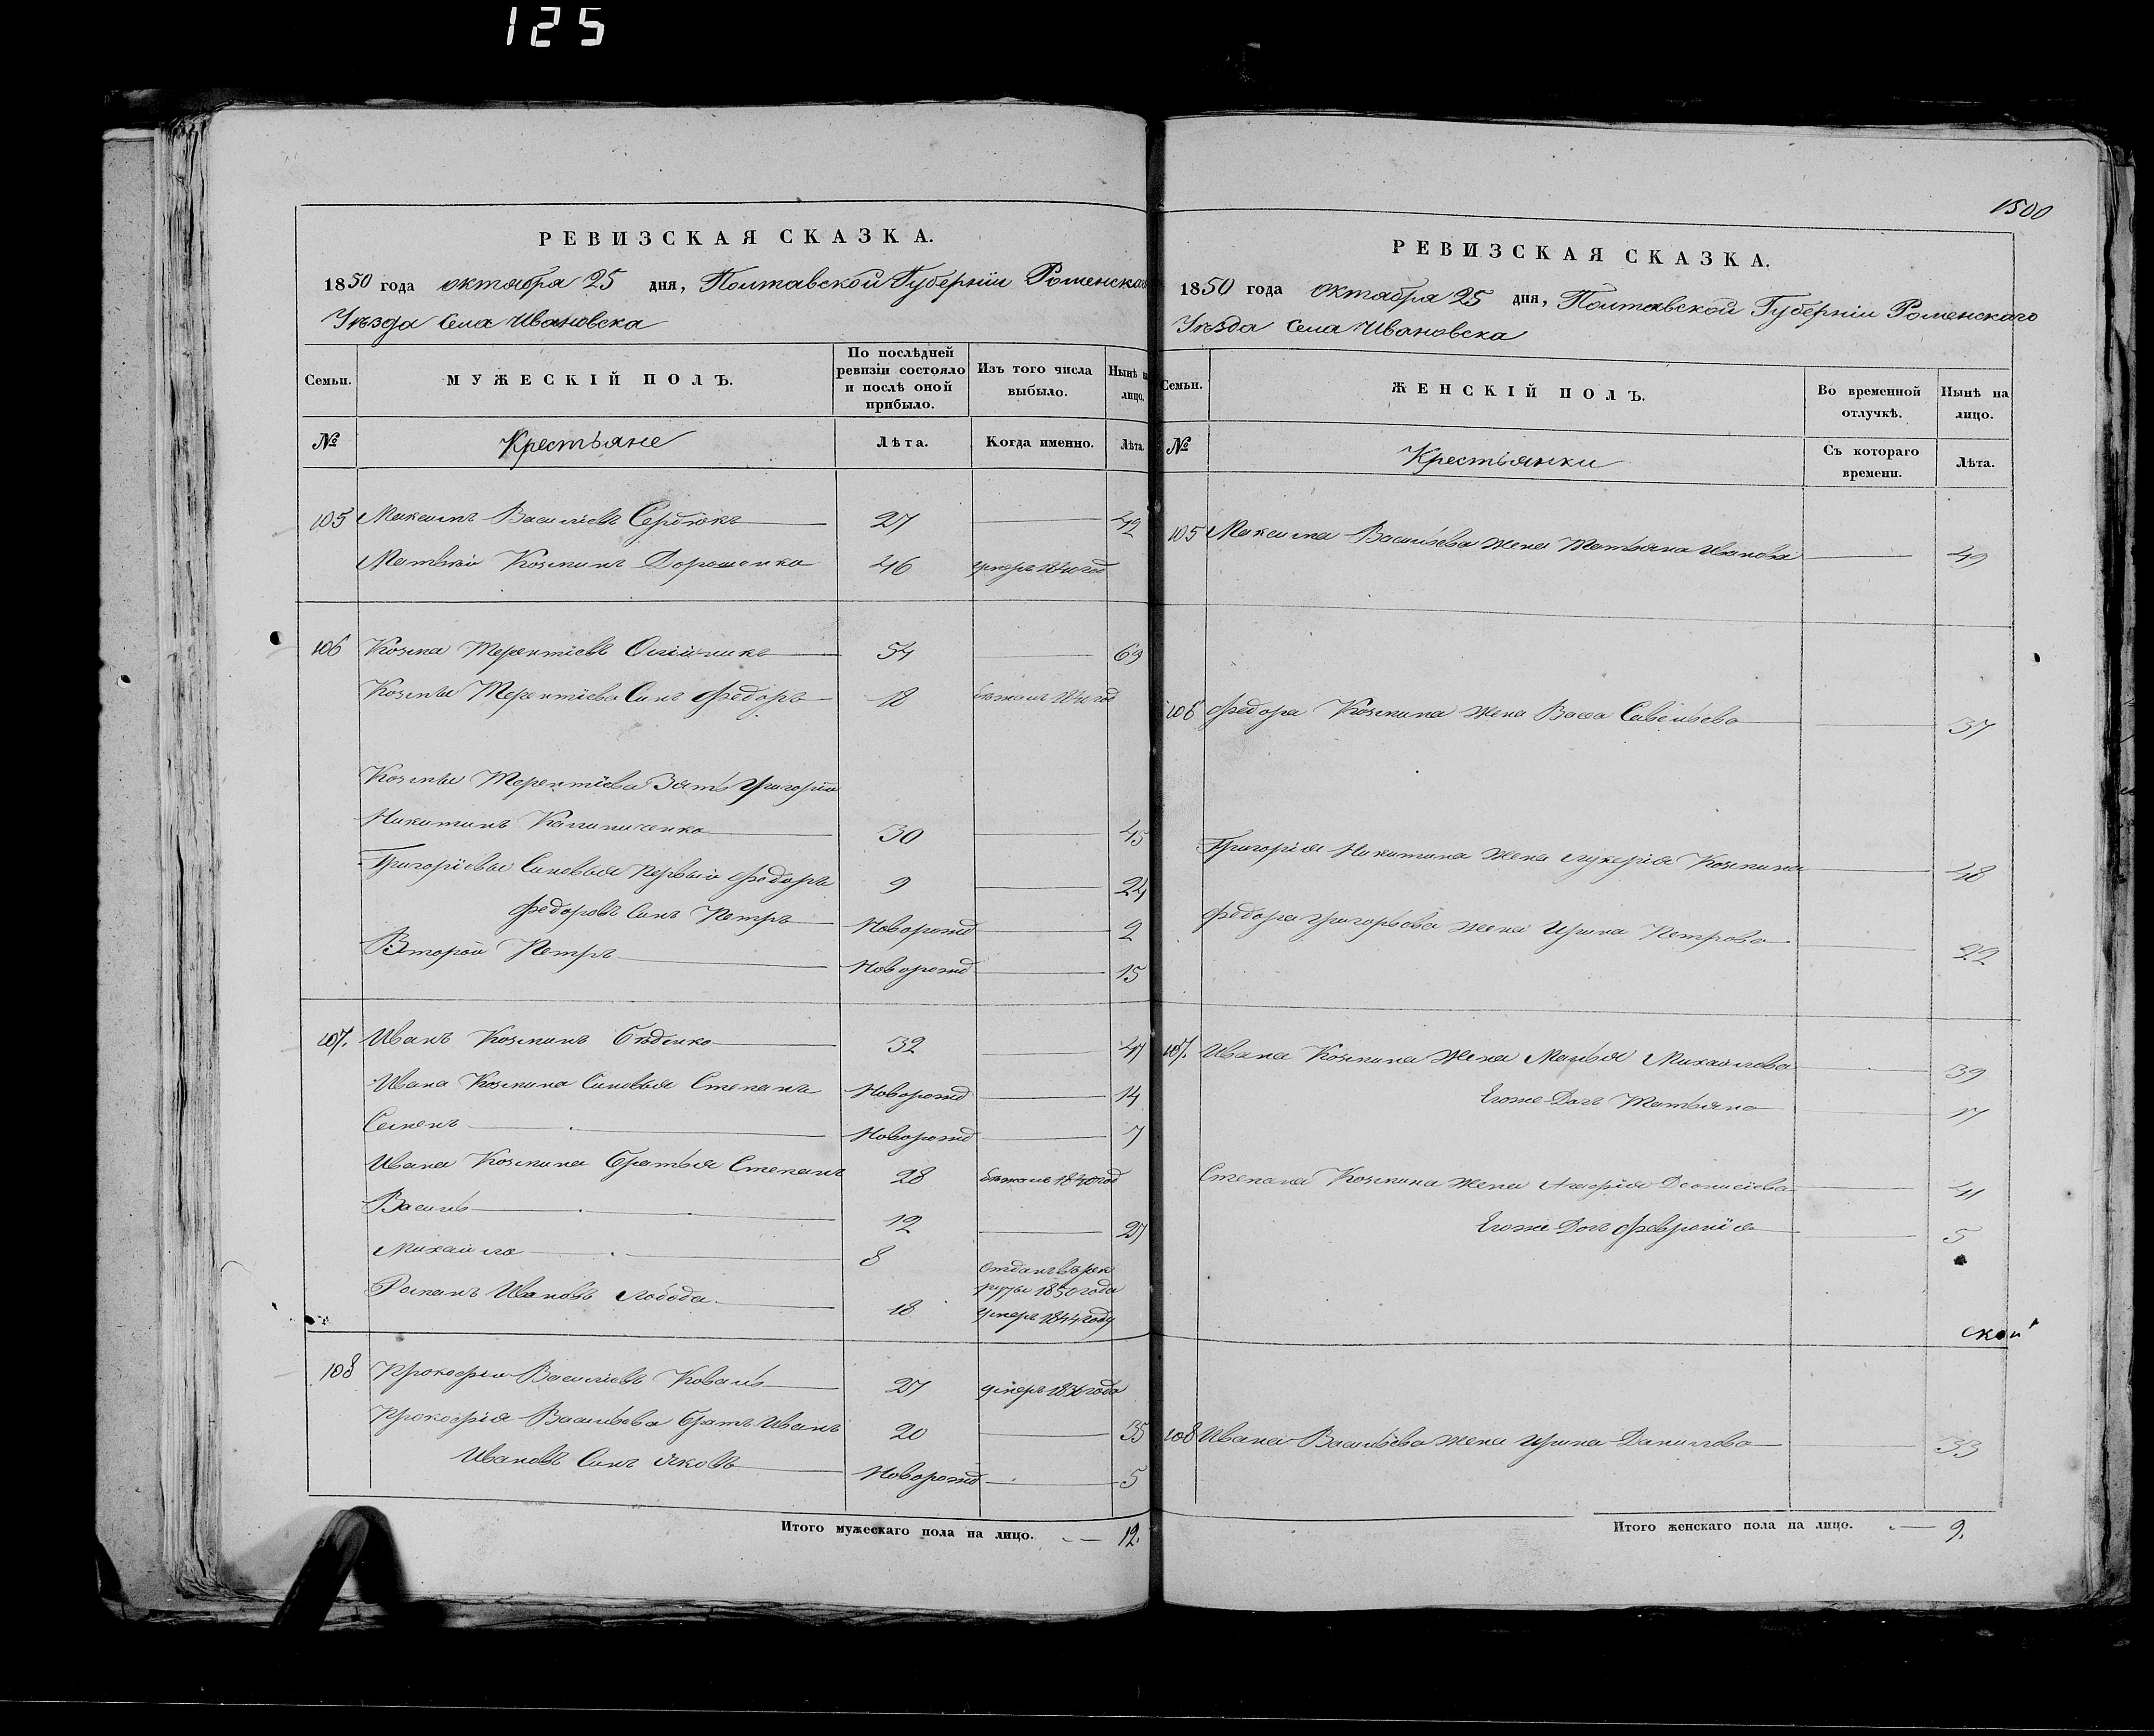 125
РЕВИЗСКАЯ СКАЗКА.
1850 года октября 25 дня, Полтавской Губерніи Роменскаго
Уѣзда Села Ивановска
Семьи.
МУЖЕСКІЙ ПОЛЪ.
По послѣдней ревизіи состояло и послѣ оной прибыло.
Изъ того числа выбыло.
Нынѣ на лицо.
№
Крестьяне
Лѣта.
Когда именно.
Лѣта.
105 Максимъ Васильевъ Сердюкъ 27 42
Матвѣй Козминъ Дорошенко 46 умеръ 1840 год
106 Козма Терентіевъ Олійникъ 54 69
Козмы Терентіева Синъ Федоръ 18 бежалъ 1840 год
Козмы Терентіева Зять Григорій
Никитинъ Калиниченко 30 45
Григоріевы Синовья первый Федоръ 9 24
Федоровъ Синъ Петръ Новорожд 2
Второй Петръ Новорожд 15
107. Иванъ Козминъ Бѣденко 32 47
Ивана Козмина Синовья Степанъ Новорожд 14
Семенъ Новорожд 7
Ивана Козмина Братья Степанъ 28 бежалъ 1840 год
Василь 12 27
Михайло 8 Отданъ въ рек
руты 1850 года
Романъ Ивановъ Лобода 18 умеръ 1844 году
108 Прокофій Васильевъ Коваль 27 умеръ года
Прокофія Васильева Братъ Иванъ 20 35
Ивановъ Синъ Яковъ Новорожд 5
Итого мужескаго пола на лицо. 12.
1500
РЕВИЗСКАЯ СКАЗКА.
1850 года октября 25 дня, Полтавской Губерніи Роменскаго
Уѣзда Села Ивановска
Семьи.
ЖЕНСКІЙ ПОЛЪ.
Во временной отлучкѣ.
Нынѣ на лицо.
№
Крестьянки
Съ котораго времени.
Лѣта.
105 Максима Васильева жена Татьяна Иванова 49
106 Федора Козмина жена Васса Савельева 37
Григорія Никитина жена Лукерія Козмина 48
Федора Григорьева жена Ирина Петрова 22
107. Ивана Козмина жена Марья Михайлова 39
Егоже Дочь Татьяна 17
Степана Козмина жена Деонисіева 41
Егоже Доч Февронія 5
ской
108 Ивана Васильева жена Ирина Данилова 33
Итого женскаго пола на лицо. 9.